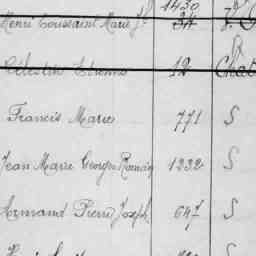 1430
Henri Toussaint Marie J. 34
Célestin Etienne 12 Chat
Francis Marie 771 S
Jean Marie Georges Romain 1232 S
Armand Pierre Joseph 647 S